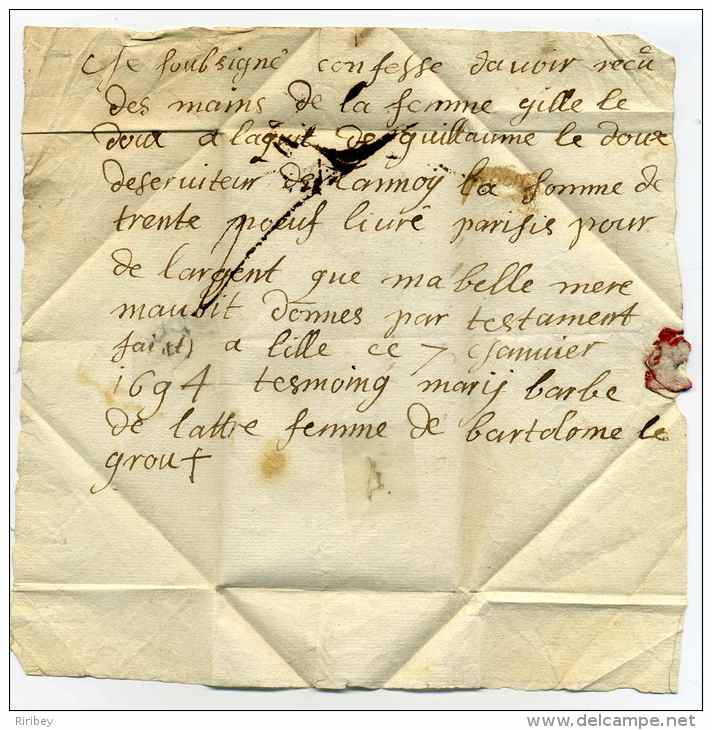 Je soubsigné confesse davoir recu
des mains de la femme gille le
doux a laquit de guillaume le doux
deseruiteur de lannoy la somme de
trente noeuf liure parisis pour
de largent que ma belle mere
mauoit donnes par testament
fait a lille ce 7 Januier
1694 tesmoing marij barbe
de lattre femme de bartolome le
grou
Riribey
www.delcampe.net